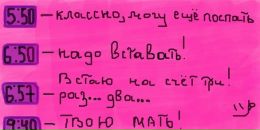 5:50 – классно, могу ещё поспать
6:50 – надо вставать!
6:57 – Встаю на счёт три!
раз... два...
9:40 – ТВОЮ МАТЬ!